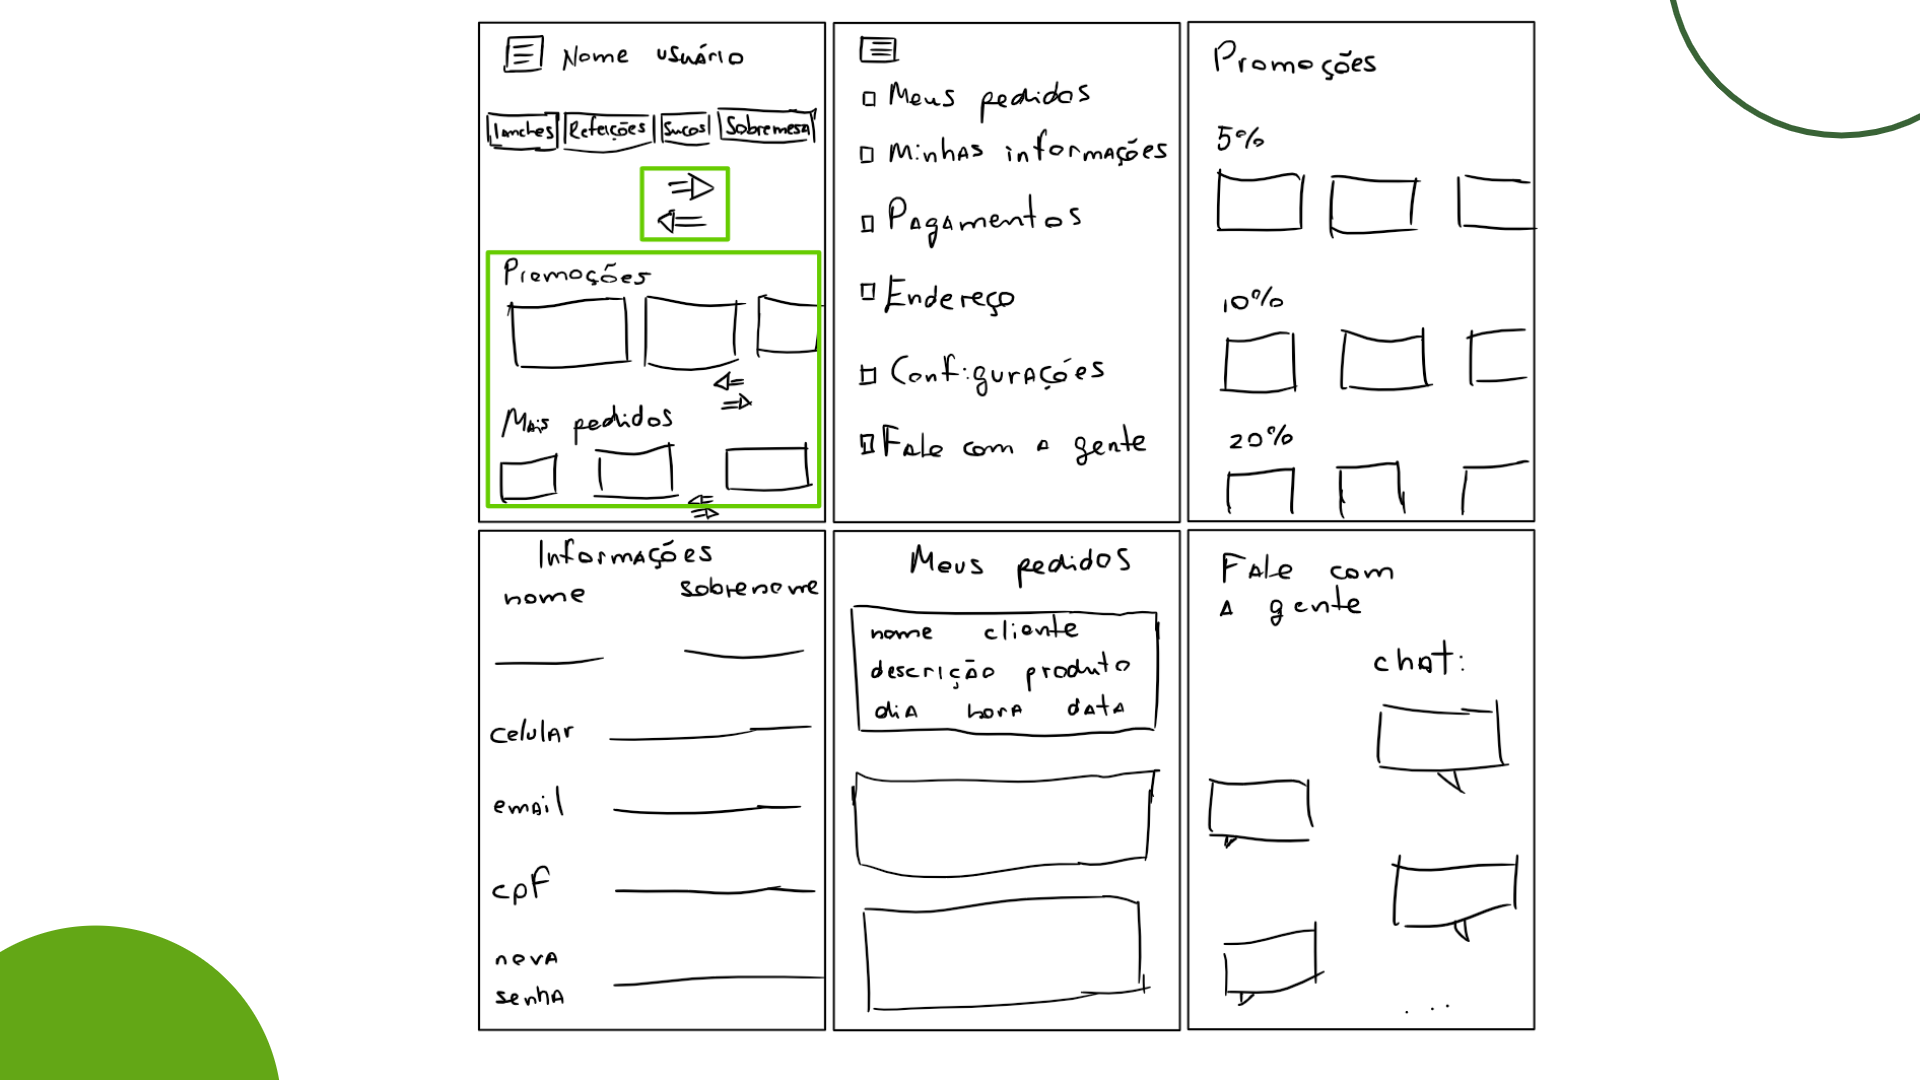 Nome usuário
lanches Refeições Sucos Sobremesa
Promoções
Mais pedidos
Meus pedidos
Minhas informações
Pagamentos
Endereço
Configurações
Fale com a gente
Promoções
5%
10%
20%
Informações
nome sobrenome
celular
email
cpf
nova
senha
Meus pedidos
nome cliente
descrição produto
dia hora data
Fale com
a gente
chat:
...